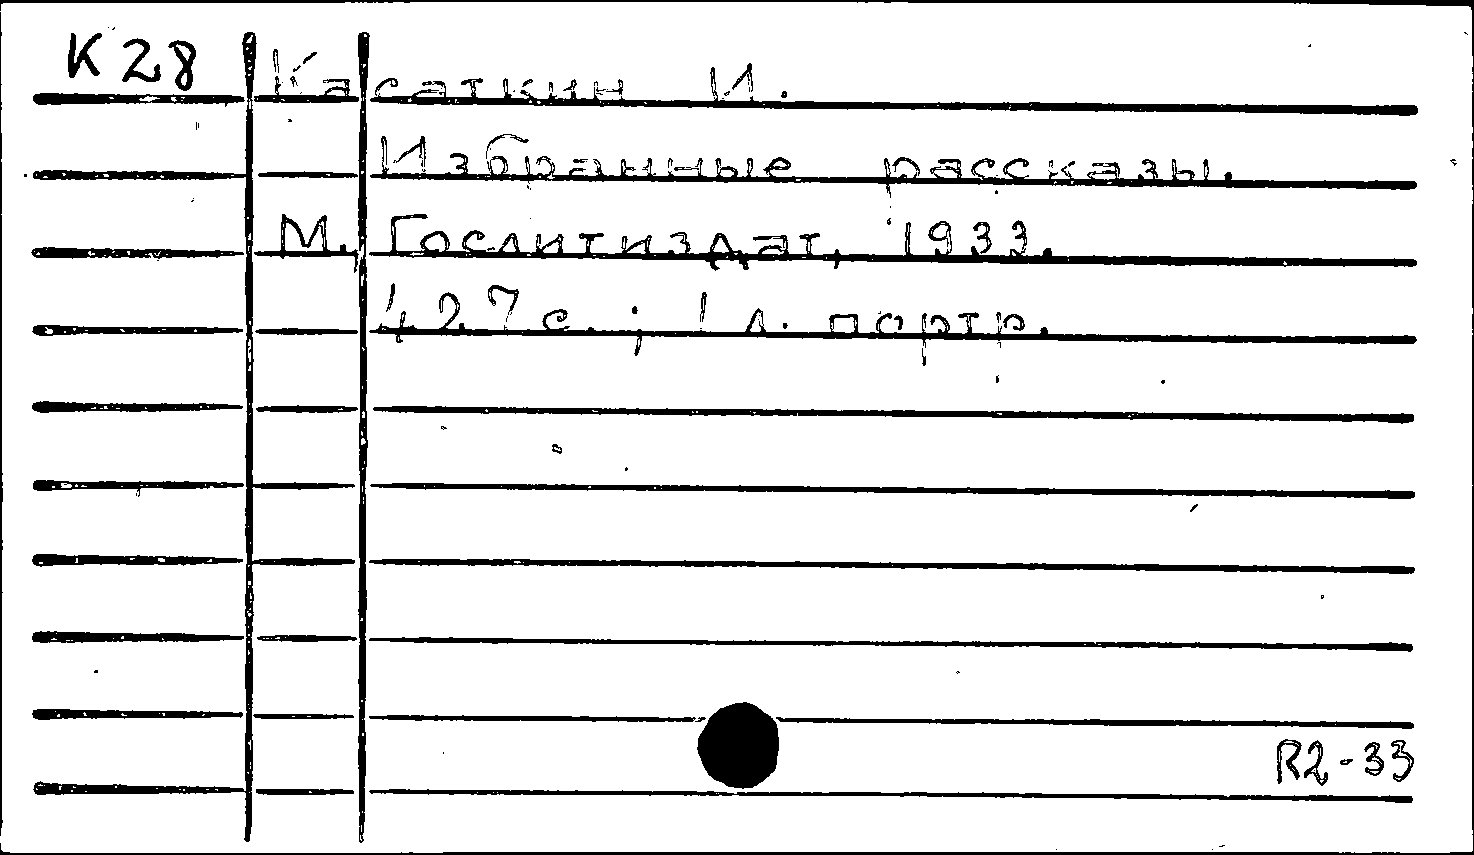 К28 Касаткин И.
Избранные рассказы.
М., Гослитиздат, 1933.
427 с. ; 1 л. портр.
R2-33